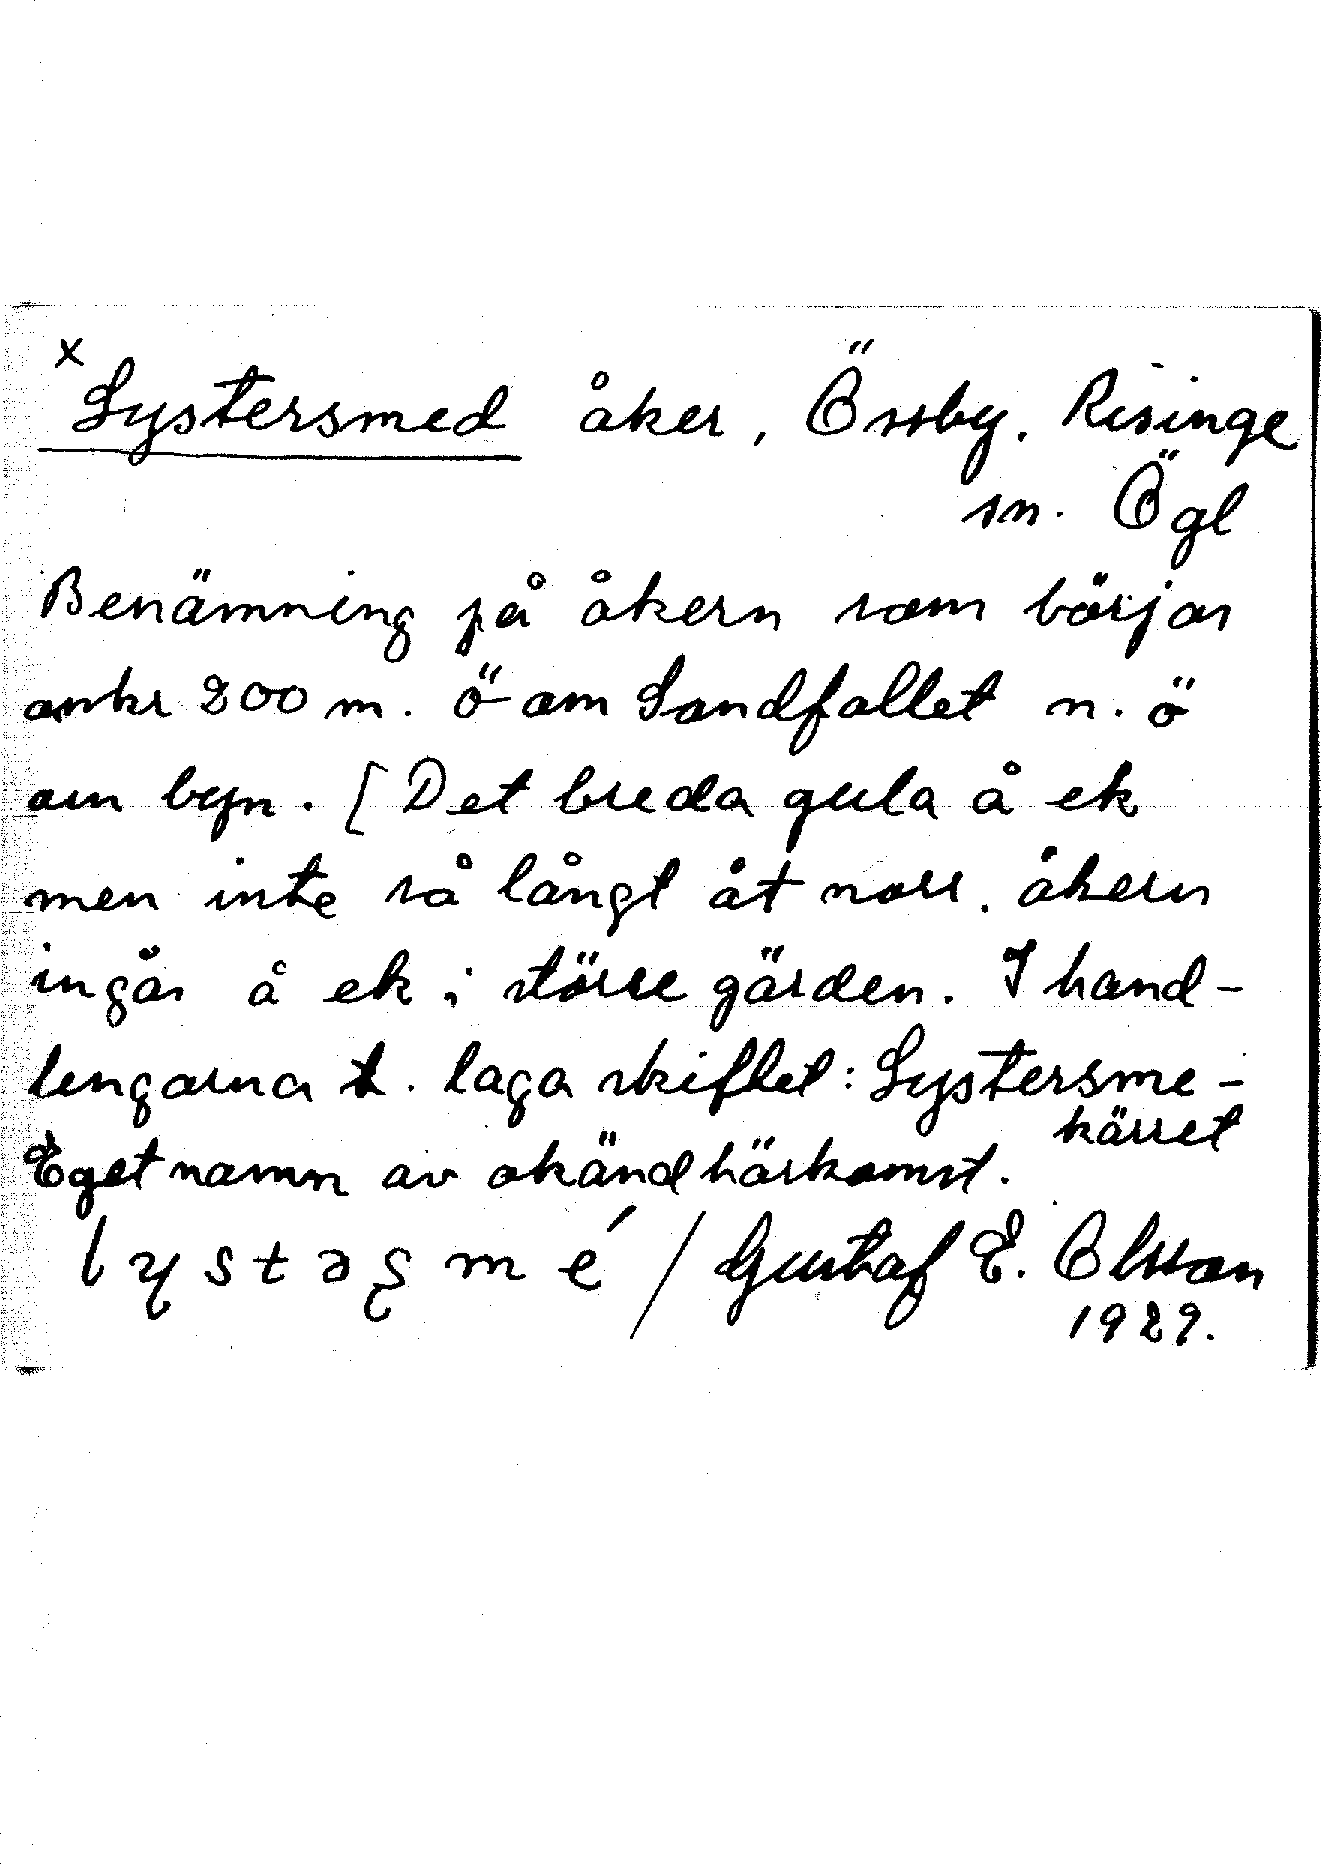 x
Lystersmed åker, Össby. Risinge
sn. Ögl
Benämning på åkern som börjar
omkr 200 m. ö om Sandfallet n. ö
om byn. [Det breda gula å ek
men inte så långt åt norr. åkern
ingår å ek i större gärden. I hand-
lingarna t. laga skiftet: Lystersme-
kärret
Eget namn av okänd härkomst.
lystəşmé / Gustaf E. Olsson
1929.